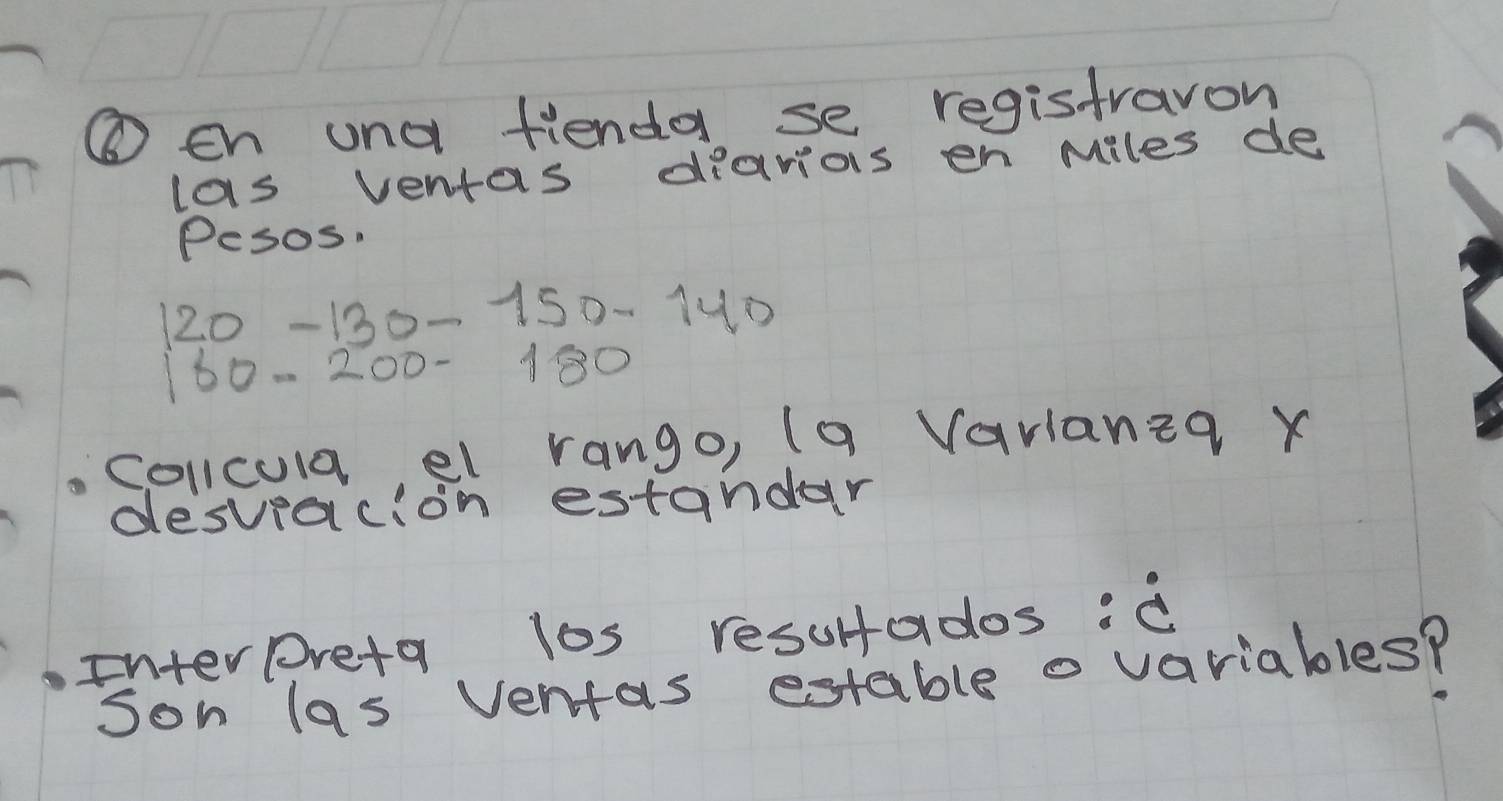 ⑥ En una tienda se registraron
las ventas diarias en Miles de
Pesos.
120 - 130 - 150 - 140
160 - 200 - 180
• Collcula el rango, la Varianza y
desviación estandar
• Interpreta los resultados : ¿
Son las ventas estable o variables?